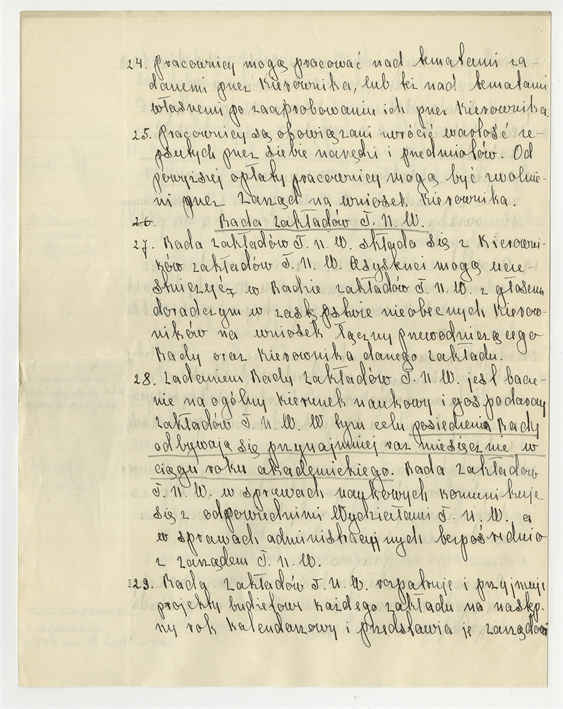 24. Pracownicy mogą pracować nad tematami za
danemi przez Kierownika, lub też nad tematami
własnemi po zaaprobowaniu ich przez Kierownika.
25. Pracownicy są obowiązani zwrócić wartość ze-
psutych przez siebie narzędzi i przedmiotów. Od
powyższej opłaty pracownicy mogą być zwolnie-
ni przez Zarząd na wniosek Kierownika.
26. Rada Zakładów T. N. W.
27. Rada Zakładów T. N. W. składa się z Kierowni-
ków Zakładów T. N. W. Asystenci mogą ucze
stniczyć w Radzie Zakładów T. N. W. z głosem
doradczym w zastępstwie nieobecnych Kierow-
ników na wniosek łączny przewodniczącego
Rady oraz Kierownika danego Zakładu.
28. Zadaniem Rady Zakładów T. N. W. jest bacze-
nie na ogólny kierunek naukowy i gospodarczy
Zakładów T. N. W. W tym celu posiedzenia Rady
odbywają się przynajmniej raz miesięcznie w
ciągu roku akademickiego. Rada Zakładów
T. N. W. w sprawach naukowych komunikuje
się z odpowiednimi Wydziałami T. N. W. a
w sprawach administracyjnych bezpośrednio
z Zarządem T. N. W.
29. Rada Zakładów T. N. W. rozpatruje i przyjmuje
projekty budżetowe każdego Zakładu na następ-
ny rok kalendarzowy i przedstawia je Zarządowi